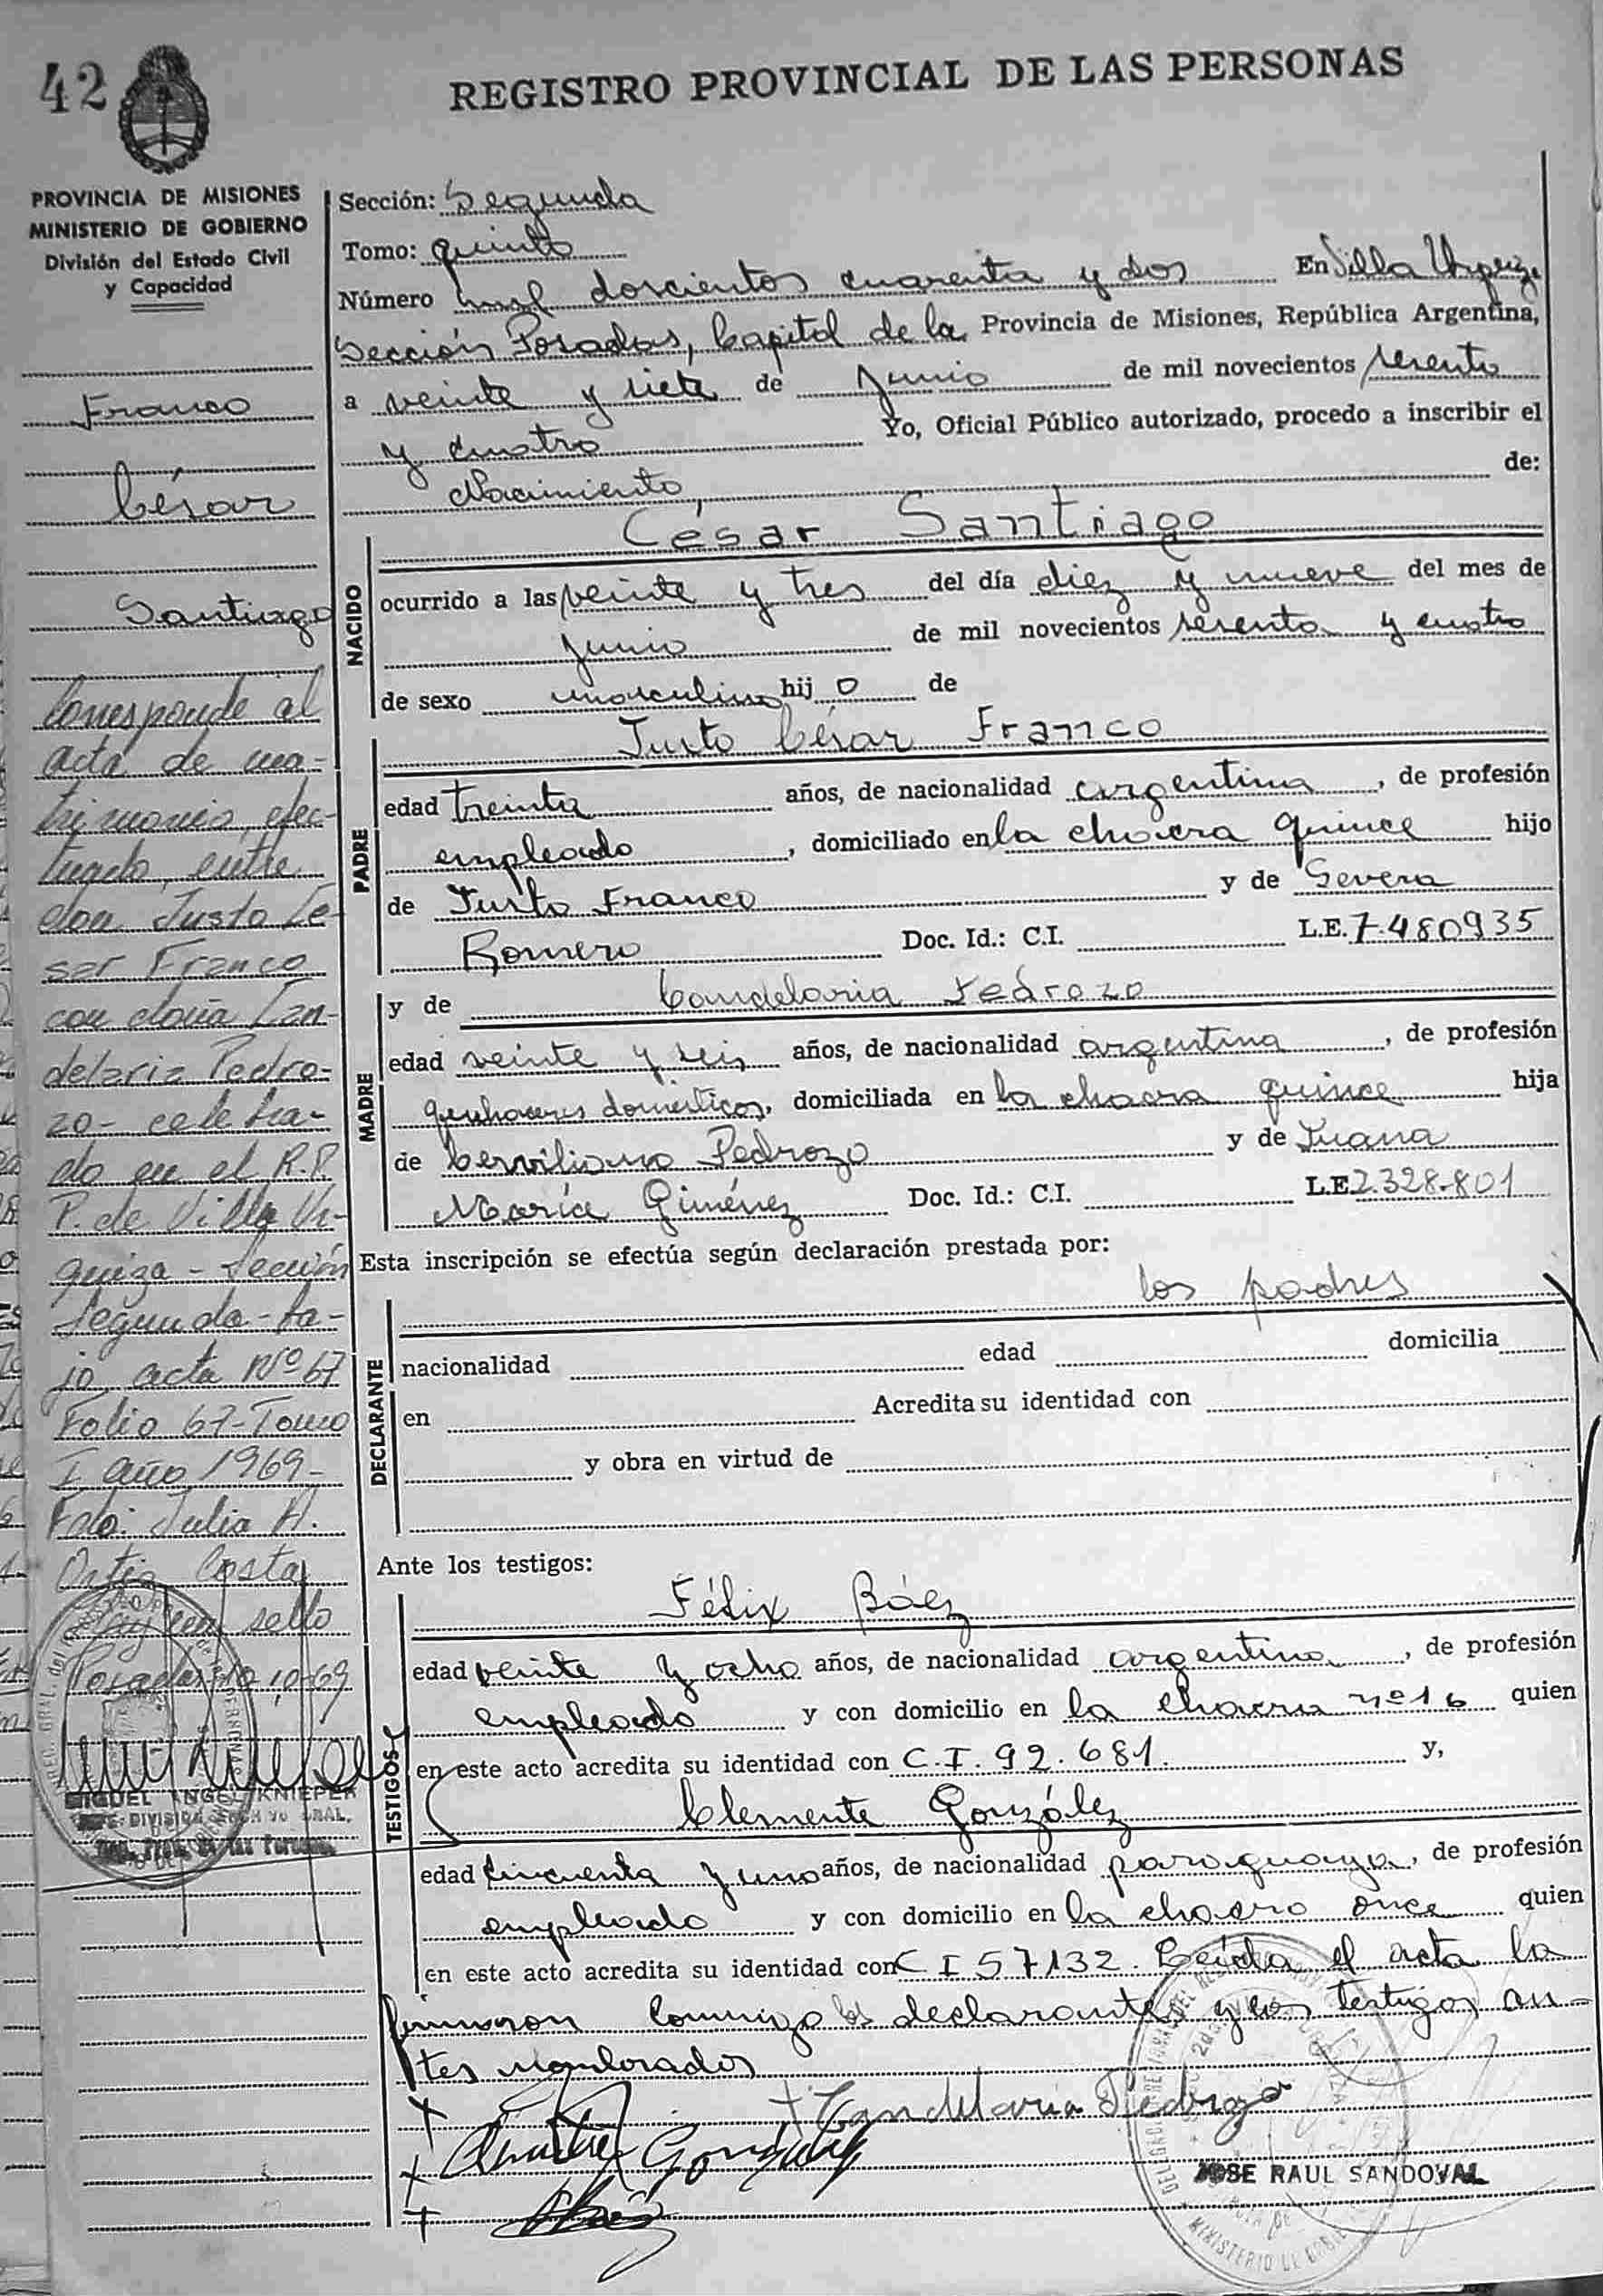 42
REGISTRO PROVINCIAL DE LAS PERSONAS
PROVINCIA DE MISIONES
MINISTERIO DE GOBIERNO
División del Estado Civil
y Capacidad
Franco
César
Santiago
Corresponde al
acta de ma-
trimonio, efec-
tuado, entre
don Justo Ce-
sar Franco
con doña Can-
delaria Pedro-
zo - celebra-
do en el R.P.
P. de Villa Ur-
quiza - Sección
Segunda - ba-
jo acta Nº 67
Folio 67 - Tomo
I año 1969 -
Fdo: Julia A.
Ortiz Costa
Hay un sello
Posadas 10,10-69
MIGUEL ANGEL KNIEPER
Sección: Segunda
Tomo: quinto
Número mil doscientos cuarenta y dos En Villa Urquiza
Sección Posadas, Capital de la Provincia de Misiones, República Argentina,
a veinte y siete de Junio de mil novecientos sesenta
y cuatro Yo, Oficial Público autorizado, procedo a inscribir el
Nacimiento, de:
NACIDO
César Santiago
ocurrido a las veinte y tres del día diez y nueve del mes de
junio de mil novecientos sesenta y cuatro
de sexo masculino hij o de
PADRE
Justo César Franco
edad treinta años, de nacionalidad argentina, de profesión
empleado, domiciliado en la chacra quince hijo
de Justo Franco y de Severa
Romero Doc. Id.: C.I. L.E. 7.480935
MADRE
y de Candelaria Pedrozo
edad veinte y seis años, de nacionalidad argentina, de profesión
quehaceres domésticos, domiciliada en la chacra quince hija
de Cerviliano Pedrozo y de Juana
María Giménez Doc. Id.: C.I. L.E 2.328.801
Esta inscripción se efectúa según declaración prestada por:
DECLARANTE
los padres
nacionalidad edad domicilia
en Acredita su identidad con
y obra en virtud de
Ante los testigos:
TESTIGOS
Félix Báez
edad veinte y ocho años, de nacionalidad argentina, de profesión
empleado y con domicilio en la chacra nº 16 quien
en este acto acredita su identidad con C.I. 92.681. y,
Clemente González
edad cincuenta y uno años, de nacionalidad paraguaya, de profesión
empleado y con domicilio en la chacra once quien
en este acto acredita su identidad con C I 57132. Leída el acta la
firmaron conmigo los declarantes y los testigos an-
tes nombrados
Candelaria Pedrozo
Clemente González
JOSE RAUL SANDOVAL